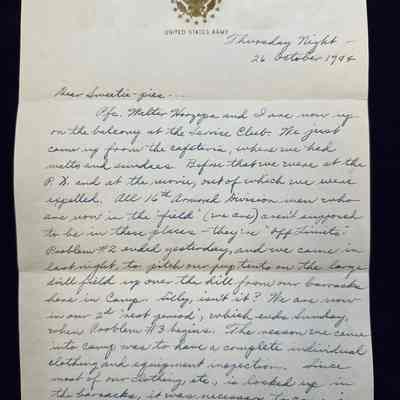 UNITED STATES ARMY
Thursday Night —
26 October 1944
Dear Sweetie-pies...
Pfc. Walter and I are now up
on the balcony at the Service Club. We just
came up from the cafeteria, where we had
malts and sundaes. Before that we were at the
P.X. and at the movie, out of which we were
expelled. All 16th Armored Division men who
are now in the "field" (we are) aren't supposed
to be in these places — they're "Off Limits."
Problem #2 ended yesterday, and we came in
last night, to pitch our pup tents on the large
drill field up over the hill from our barracks
here in Camp. Silly, isn't it? We are now
in our 2nd "rest period", which ends Sunday,
when Problem #3 begins. The reason we came
into camp was to have a complete individual
clothing and equipment inspection. Since
most of our clothing, etc., is locked up in
the barracks, it was necessary to come in